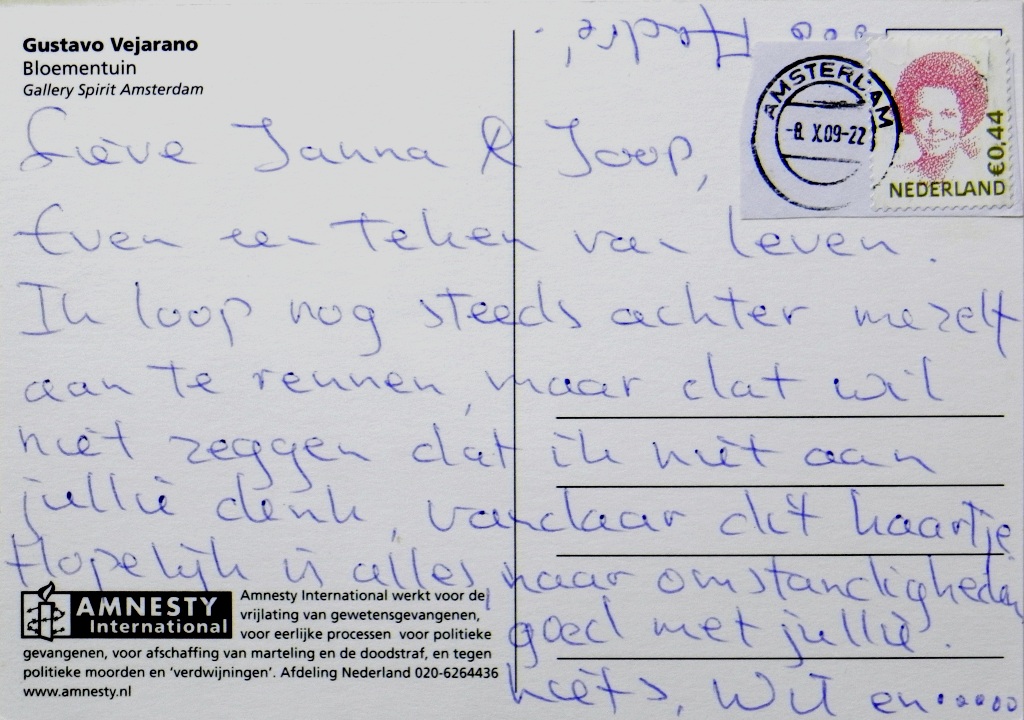 Gustavo Vejarano
Bloementuin
Gallery Spirit Amsterdam
AMSTERDAM
-8. X.09-22
€0,44
NEDERLAND
Lieve Janna & Joop,
Even een teken van leven.
Ik loop nog steeds achter mezelf
aan te rennen, maar dat wil
niet zeggen dat ik niet aan
jullie denk, vandaar dit kaartje
Hopelijk is alles, naar omstandigheden,
goed met jullie.
liefs, Wil en.....
AMNESTY
International
Amnesty International werkt voor de
vrijlating van gewetensgevangenen,
voor eerlijke processen voor politieke
gevangenen, voor afschaffing van marteling en de doodstraf, en tegen
politieke moorden en 'verdwijningen'. Afdeling Nederland 020-6264436
www.amnesty.nl